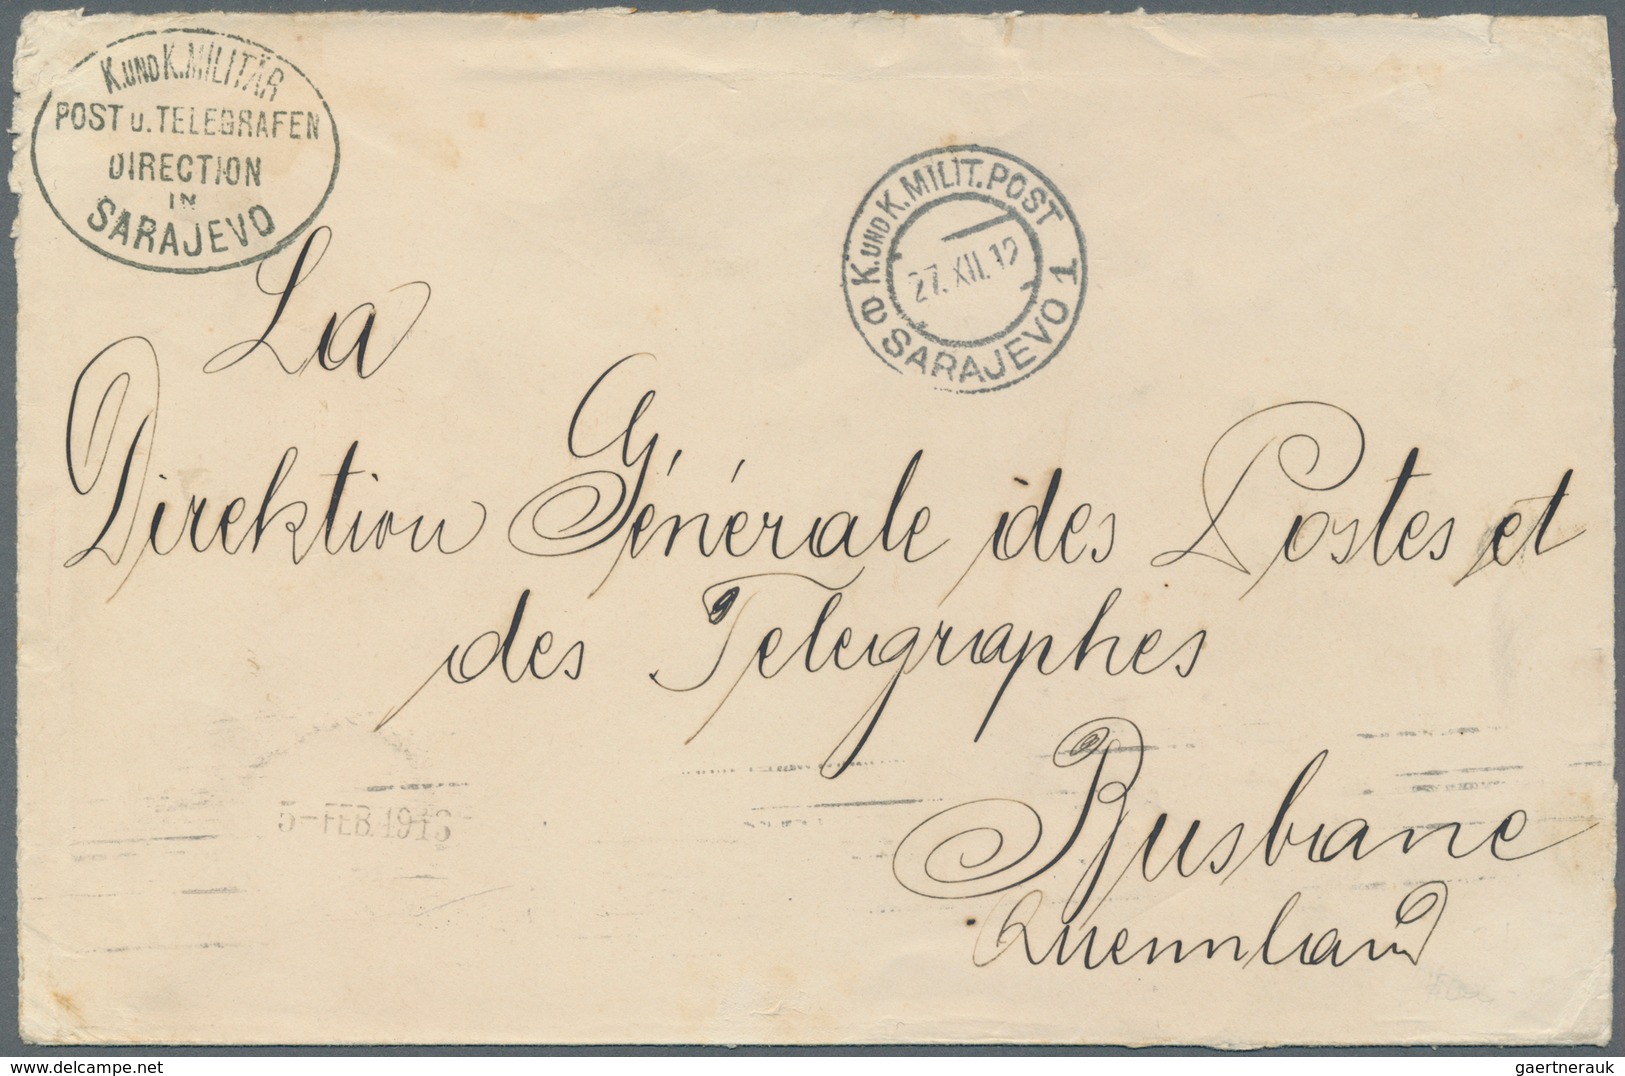 K. UND K. MILITÄR
POST u. TELEGRAFEN
DIRECTION
IN
SARAJEVO
K. UND K. MILIT. POST
27. XII. 12
SARAJEVO 1
La
Direktion Générale des Postes et
des Telegraphes
Brisbane
Queensland
5-FEB.1913
gaertnerauk